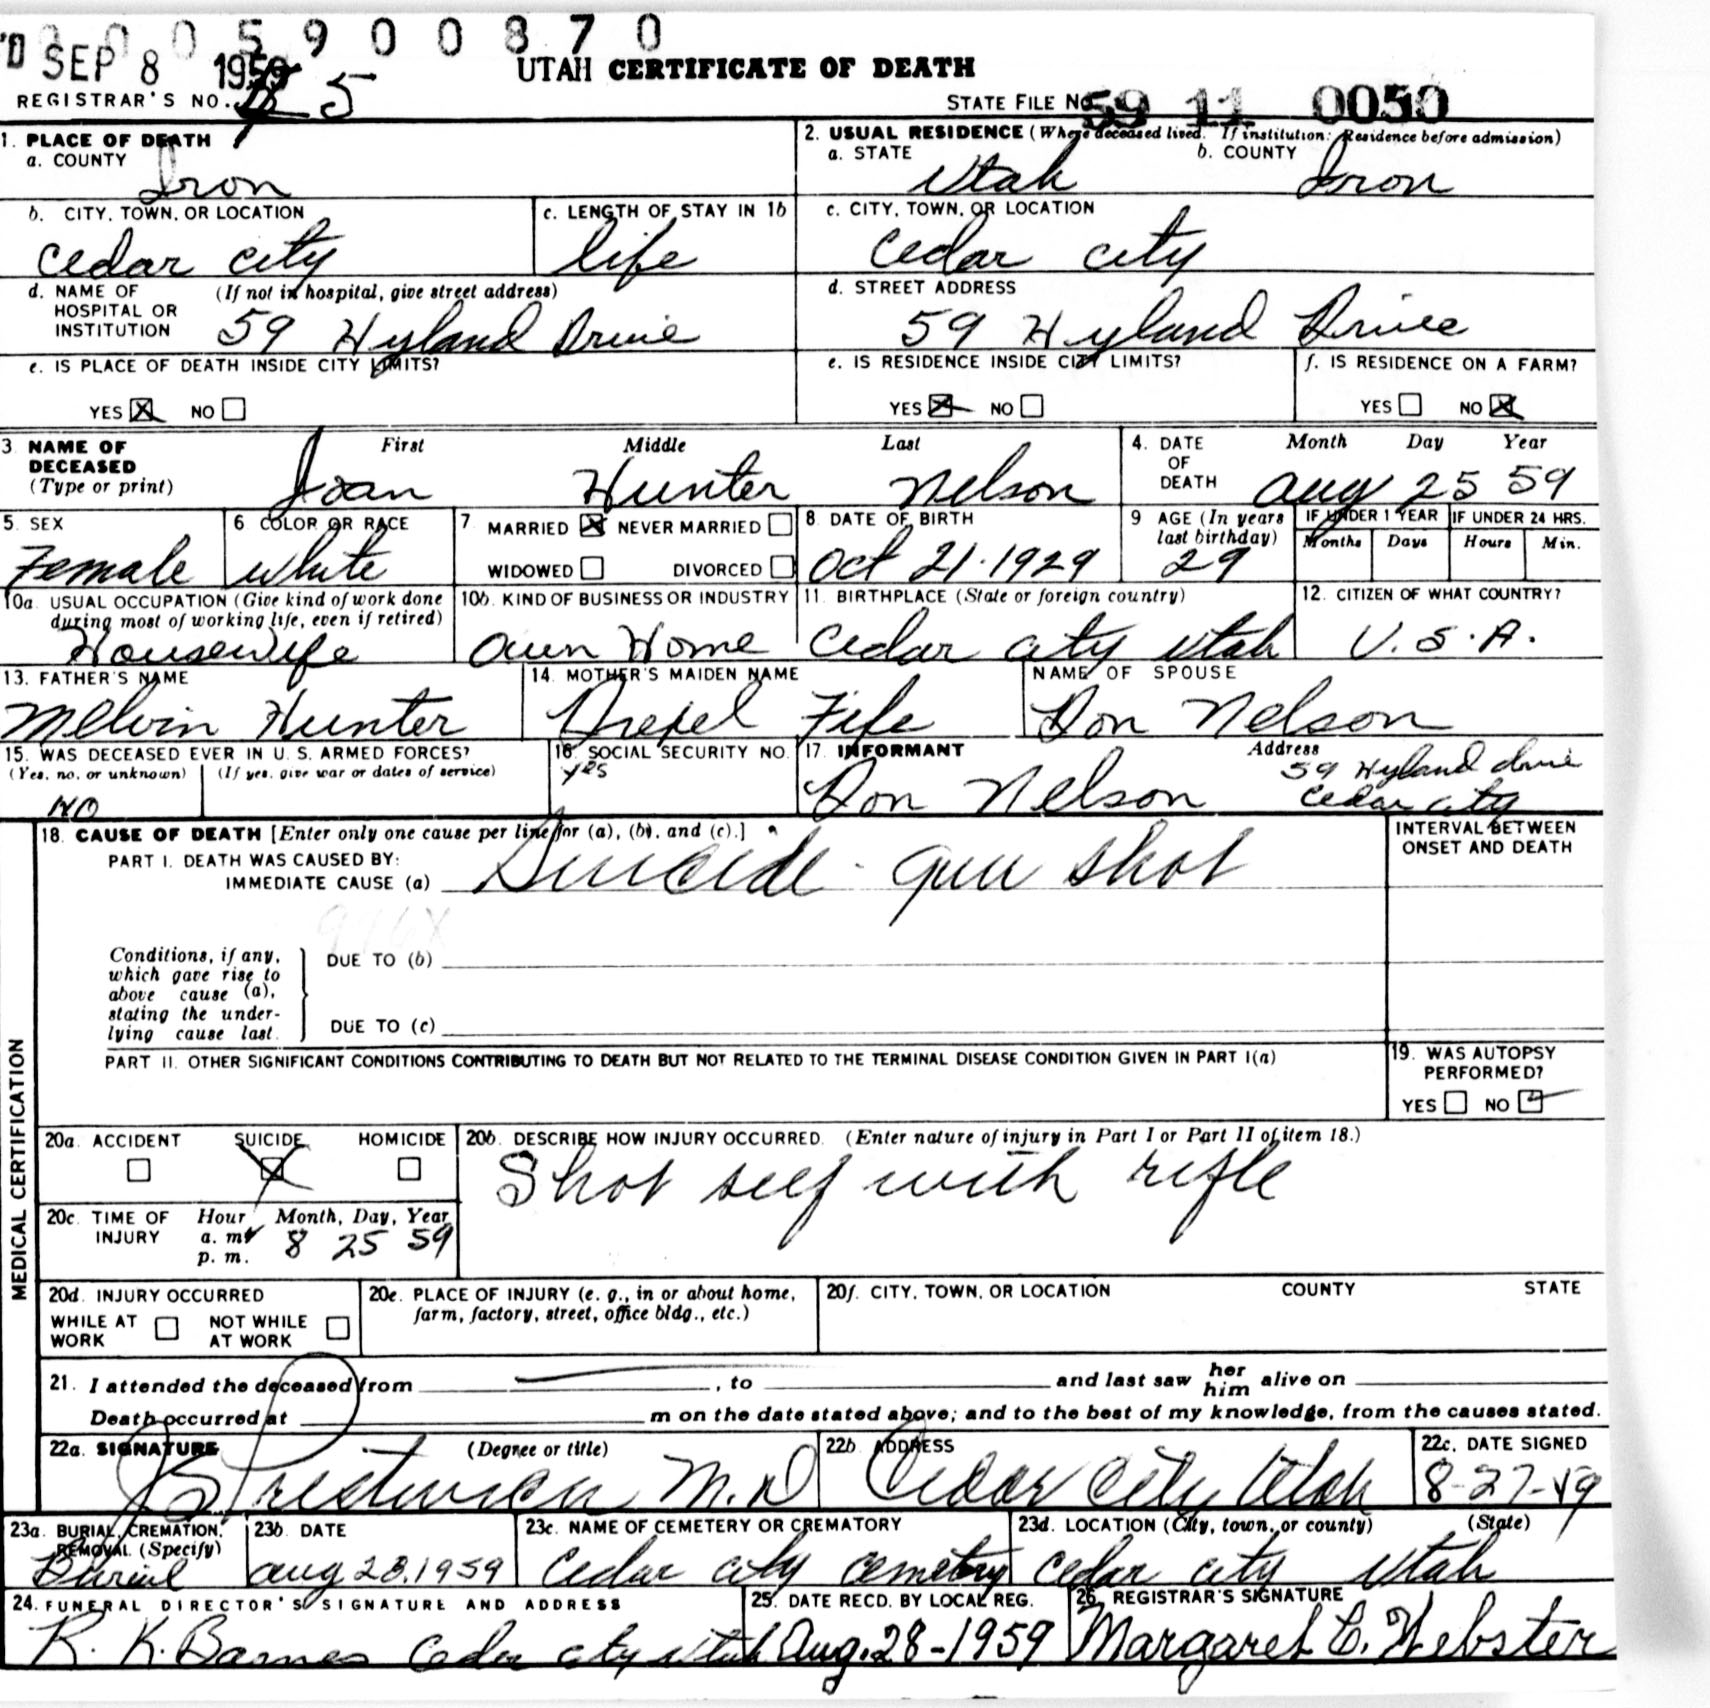 0 0 5 9 0 0 8 7 0
SEP 8 1959
UTAH CERTIFICATE OF DEATH
REGISTRAR'S NO. 5
STATE FILE No. 59 11 0050
1. PLACE OF DEATH
a. COUNTY
Iron
2. USUAL RESIDENCE (Where deceased lived. If institution: Residence before admission)
a. STATE
Utah
b. COUNTY
Iron
b. CITY, TOWN, OR LOCATION
Cedar City
c. LENGTH OF STAY IN 1b
life
c. CITY, TOWN, OR LOCATION
Cedar City
d. NAME OF HOSPITAL OR INSTITUTION (If not in hospital, give street address)
59 Hyland Drive
d. STREET ADDRESS
59 Hyland Drive
e. IS PLACE OF DEATH INSIDE CITY LIMITS?
YES X NO
e. IS RESIDENCE INSIDE CITY LIMITS?
YES X NO
f. IS RESIDENCE ON A FARM?
YES NO X
3 NAME OF DECEASED (Type or print)
First Middle Last
Joan Hunter Nelson
4. DATE OF DEATH
Month Day Year
Aug 25 59
5. SEX
Female
6 COLOR OR RACE
White
7. MARRIED X NEVER MARRIED
WIDOWED DIVORCED
8. DATE OF BIRTH
Oct 21. 1929
9 AGE (In years last birthday)
29
IF UNDER 1 YEAR
Months Days
IF UNDER 24 HRS.
Hours Min.
10a. USUAL OCCUPATION (Give kind of work done during most of working life, even if retired)
Housewife
10b. KIND OF BUSINESS OR INDUSTRY
Own Home
11. BIRTHPLACE (State or foreign country)
Cedar City Utah
12. CITIZEN OF WHAT COUNTRY?
U.S.A.
13. FATHER'S NAME
Melvin Hunter
14. MOTHER'S MAIDEN NAME
Fife
NAME OF SPOUSE
Don Nelson
15. WAS DECEASED EVER IN U. S. ARMED FORCES?
(Yes, no, or unknown) (If yes, give war or dates of service)
NO
16. SOCIAL SECURITY NO.
yes
17. INFORMANT
Don Nelson
Address
59 Hyland drive
Cedar City
18. CAUSE OF DEATH [Enter only one cause per line for (a), (b), and (c).]
PART I. DEATH WAS CAUSED BY:
IMMEDIATE CAUSE (a) Suicide - gun shot
INTERVAL BETWEEN ONSET AND DEATH
Conditions, if any, which gave rise to above cause (a), stating the underlying cause last.
DUE TO (b)
DUE TO (c)
PART II. OTHER SIGNIFICANT CONDITIONS CONTRIBUTING TO DEATH BUT NOT RELATED TO THE TERMINAL DISEASE CONDITION GIVEN IN PART I(a)
19. WAS AUTOPSY PERFORMED?
YES NO
MEDICAL CERTIFICATION
20a. ACCIDENT SUICIDE HOMICIDE
20b. DESCRIBE HOW INJURY OCCURRED. (Enter nature of injury in Part I or Part II of item 18.)
Shot self with rifle
20c. TIME OF INJURY
Hour Month, Day, Year
a. m.
p. m.
8 25 59
20d. INJURY OCCURRED
WHILE AT WORK NOT WHILE AT WORK
20e. PLACE OF INJURY (e. g., in or about home, farm, factory, street, office bldg., etc.)
20f. CITY, TOWN, OR LOCATION COUNTY STATE
21. I attended the deceased from , to and last saw her him alive on
Death occurred at m on the date stated above; and to the best of my knowledge, from the causes stated.
22a. SIGNATURE (Degree or title)
Prestwich M.D
22b. ADDRESS
Cedar City Utah
22c. DATE SIGNED
8-27-59
23a. BURIAL, CREMATION, REMOVAL (Specify)
Burial
23b. DATE
Aug 28. 1959
23c. NAME OF CEMETERY OR CREMATORY
Cedar City Cemetery
23d. LOCATION (City, town, or county) (State)
Cedar City Utah
24. FUNERAL DIRECTOR'S SIGNATURE AND ADDRESS
R. K. Barnes Cedar City Utah
25. DATE RECD. BY LOCAL REG.
Aug. 28-1959
26. REGISTRAR'S SIGNATURE
Margaret C. Webster